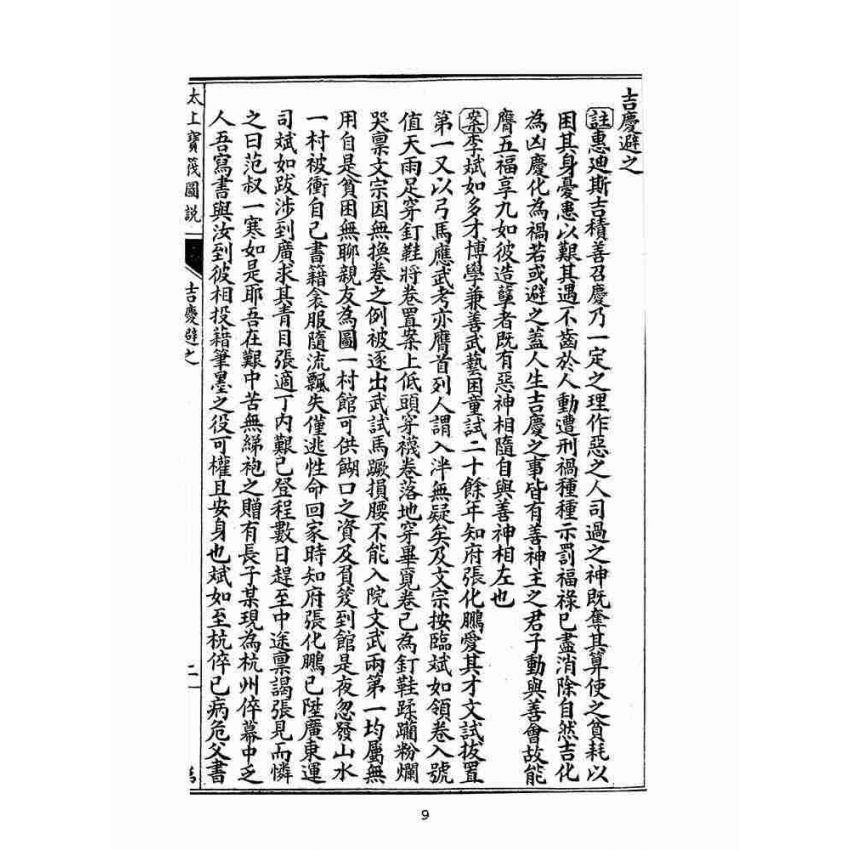 吉慶避之
註惠迪斯吉積善召慶乃一定之理作惡之人司過之神既奪其算使之貧耗以
困其身憂患以艱其遇不齒於人動遭刑禍種種示罰福祿已盡消除自然吉化
為凶慶化為禍若或避之蓋人生吉慶之事皆有善神主之君子動與善會故能
膺五福享九如彼造孽者既有惡神相隨自與善神相左也
案李斌如多才博學兼善武藝困童試二十餘年知府張化鵬愛其才文試拔置
第一又以弓馬應武考亦膺首列人謂入泮無疑矣及文宗按臨斌如領卷入號
值天雨足穿釘鞋將卷置案上低頭穿襪卷落地穿畢覓卷已為釘鞋蹂躪粉爛
哭稟文宗因無換卷之例被逐出武試馬蹶損腰不能入院文武兩第一均屬無
用自是貧困無聊親友為圖一村館可供餬口之資及負笈到館是夜忽發山水
一村被衝自己書籍衾服隨流飄失僅逃性命回家時知府張化鵬已陞廣東運
司斌如跋涉到廣求其青目張適丁內艱已登程數日趕至中途稟謁張見而憐
之曰范叔一寒如是耶吾在艱中苦無綈袍之贈有長子某現為杭州倅幕中乏
人吾寫書與汝到彼相投藉筆墨之役可權且安身也斌如至杭倅已病危父書
太上寶筏圖說
吉慶避之
二
9